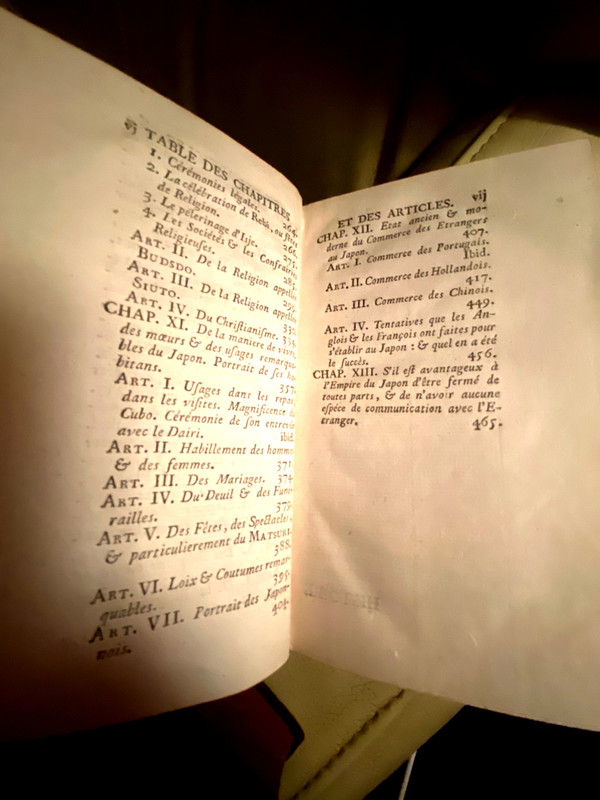 vj TABLE DES CHAPITRES
1. Cérémonies légales. 264.
2. La célébration de Rebi, ou fêtes
de Religion. 266.
3. Le pélerinage d'Isje. 275.
4. Les Sociétés & les Confrairies
Religieuses. 285.
ART. II. De la Religion appellée
BUDSDO.
ART. III. De la Religion appellée
SIUTO.
ART. IV. Du Christianisme. 334.
CHAP. XI. De la maniere de vivre,
des mœurs & des usages remarqua-
bles du Japon. Portrait de ses ha-
bitans. 357.
ART. I. Usages dans les repas,
dans les visites. Magnificence du
Cubo. Cérémonie de son entrevue
avec le Dairi. ibid.
ART. II. Habillement des hommes
& des femmes. 371.
ART. III. Des Mariages. 374.
ART. IV. Du Deuil & des Funé-
railles. 379.
ART. V. Des Fêtes, des Spectacles,
& particulierement du MATSURI.
388.
ART. VI. Loix & Coutumes remar-
quables. 395.
ART. VII. Portrait des Japon-
nois. 404.
ET DES ARTICLES. vij
CHAP. XII. Etat ancien & mo-
derne du Commerce des Etrangers
au Japon. 407.
ART. I. Commerce des Portugais.
Ibid.
ART. II. Commerce des Hollandois.
417.
ART. III. Commerce des Chinois.
449.
ART. IV. Tentatives que les An-
glois & les François ont faites pour
s'établir au Japon : & quel en a été
le succès. 456.
CHAP. XIII. S'il est avantageux à
l'Empire du Japon d'être fermé de
toutes parts, & de n'avoir aucune
espéce de communication avec l'E-
tranger. 465.